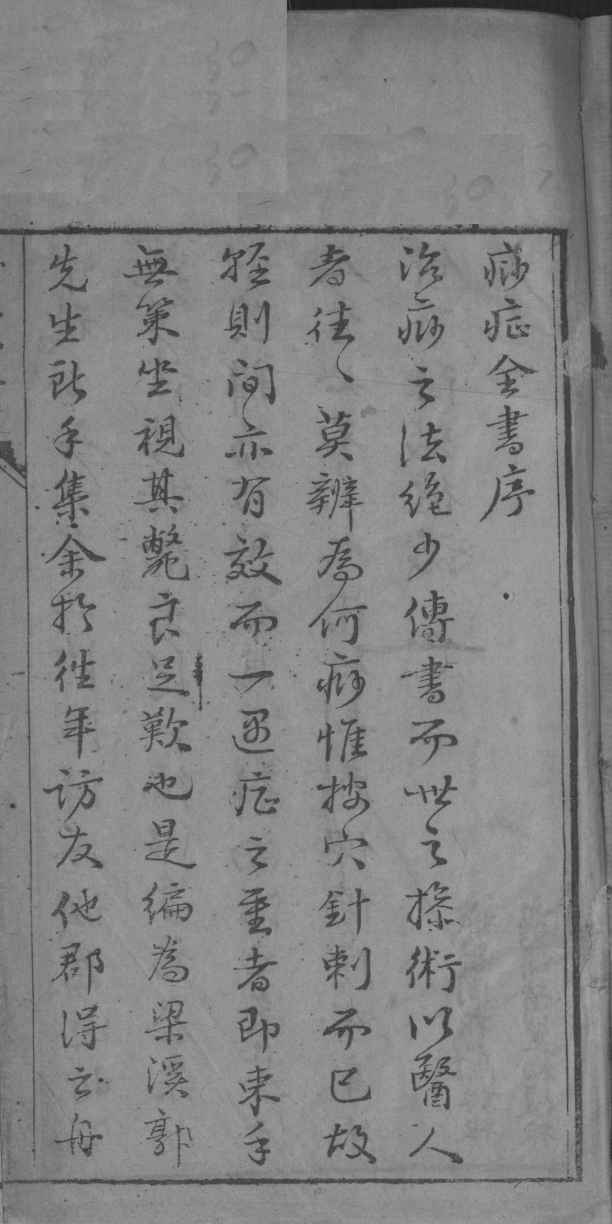 痧症全書序
治痧之法絶少傳書而世之操術以醫人
者徃〻莫辨為何痧惟按穴針刺而已故
輕則间亦有效而一遇症之重者即束手
無策坐視其斃良足歎也是编為梁溪郭
先生所手集余於徃年訪友他郡得云舟